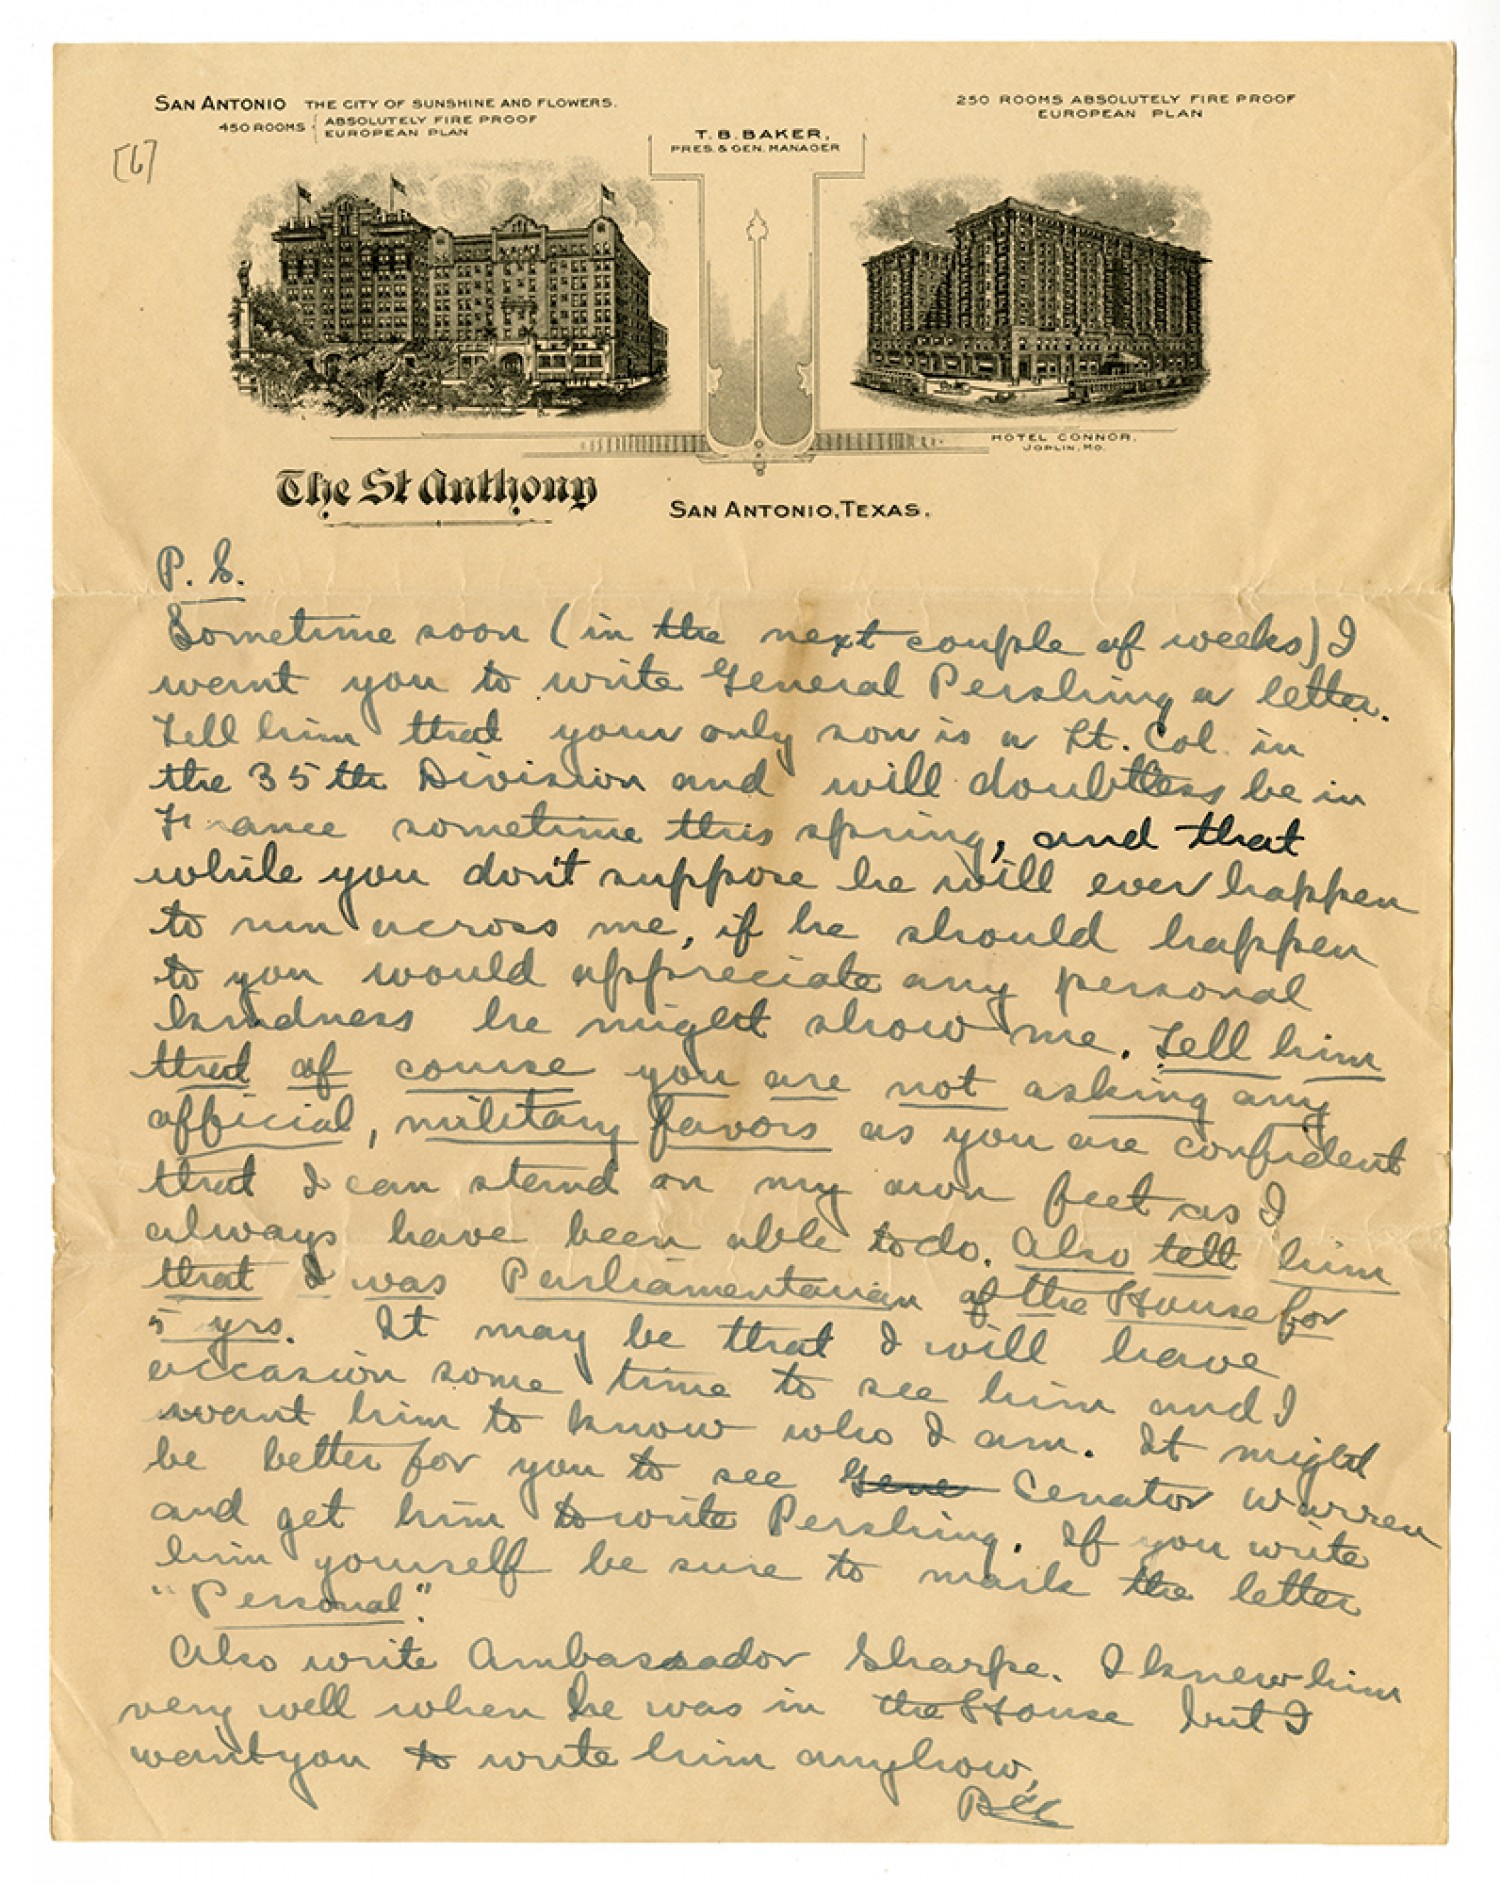 SAN ANTONIO THE CITY OF SUNSHINE AND FLOWERS.
450 ROOMS { ABSOLUTELY FIRE PROOF
EUROPEAN PLAN
250 ROOMS ABSOLUTELY FIRE PROOF
EUROPEAN PLAN
T. B. BAKER,
PRES. & GEN. MANAGER
[6]
HOTEL CONNOR,
JOPLIN, MO.
The St Anthony
SAN ANTONIO, TEXAS.
P. S.
Sometime soon (in the next couple of weeks) I
want you to write General Pershing a letter.
Tell him that your only son is a Lt. Col. in
the 35th Division and will doubtless be in
France sometime this spring, and that
while you don't suppose he will ever happen
to run across me, if he should happen
to you would appreciate any personal
kindness he might show me. Tell him
that of course you are not asking any
official, military favors as you are confident
that I can stand on my own feet as I
always have been able to do. Also tell him
that I was Parliamentarian of the House for
5 yrs. It may be that I will have
occasion some time to see him and I
want him to know who I am. It might
be better for you to see Gene Senator Warren
and get him to write Pershing. If you write
him yourself be sure to mark the letter
"Personal".
Also write Ambassador Sharpe. I knew him
very well when he was in the House but I
want you to write him anyhow.